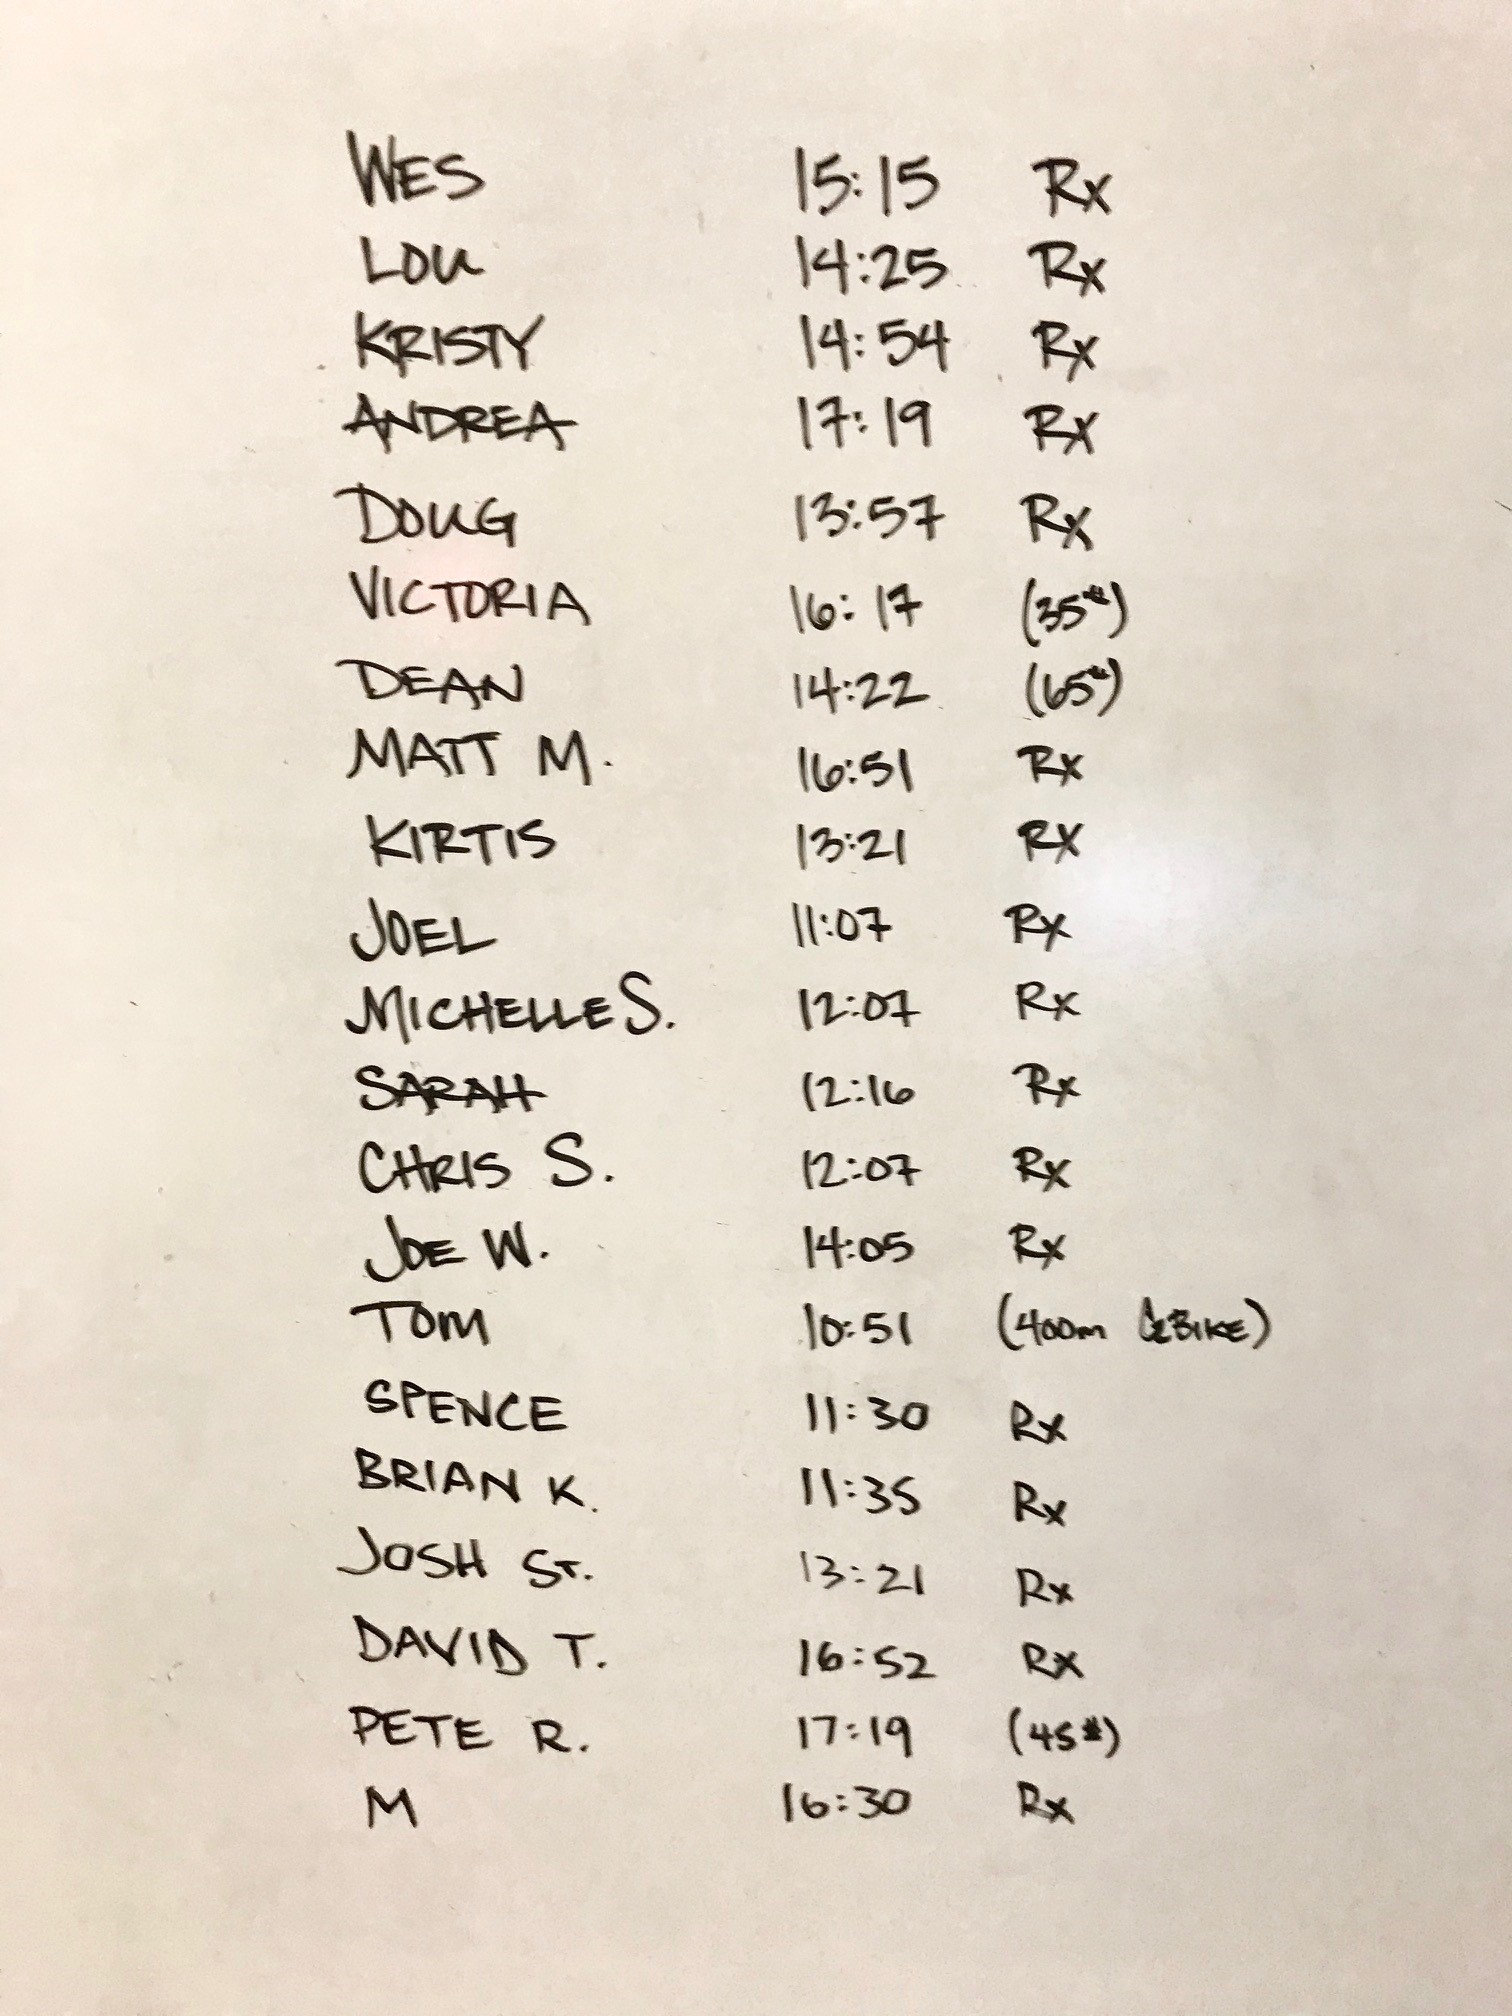 WES 15:15 Rx
LOU 14:25 Rx
KRISTY 14:54 Rx
ANDREA 17:19 Rx
DOUG 13:57 Rx
VICTORIA 16:17 (35#)
DEAN 14:22 (65#)
MATT M. 16:51 Rx
KIRTIS 13:21 RX
JOEL 11:07 Rx
MICHELLE S. 12:07 Rx
SARAH 12:16 Rx
CHRIS S. 12:07 Rx
JOE W. 14:05 Rx
TOM 10:51 (400m BIKE)
SPENCE 11:30 Rx
BRIAN K. 11:35 Rx
JOSH ST. 13:21 Rx
DAVID T. 16:52 Rx
PETE R. 17:19 (45#)
M 16:30 Rx